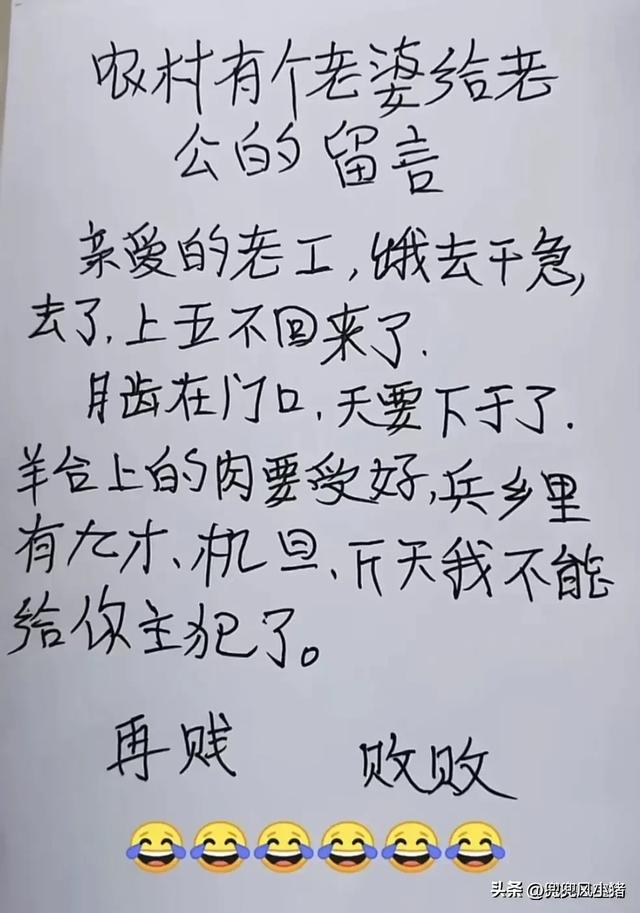 农村有个老婆给老
公的留言
亲爱的老工,蛾去干急,
去了.上五不回来了.
月齿在门口,天要下于了.
羊台上的肉要受好,兵乡里
有九才、机旦、斤天我不能
给你主犯了。
再贱 败败
😂😂😂😂😂😂
头条 @兜兜风小猪